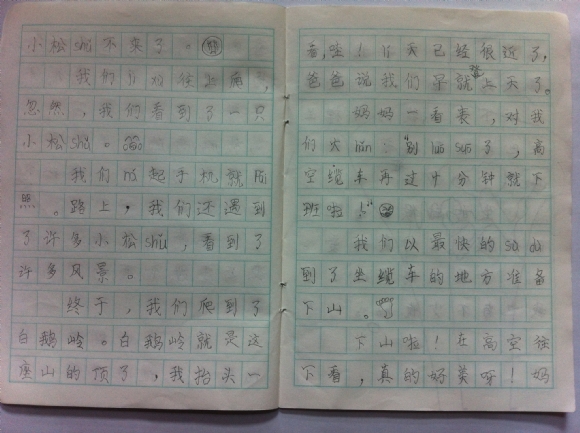 小松shǔ不来了。
我们
忽然，我们看到了一只
小松shǔ。
我们 起手机就
照。路上，我们还遇到
了许多小松shǔ，看到了
许多风景。
终于，我们爬到了
白鹅岭。白鹅岭就是这
座山的顶了，我抬头一
看，哇！ 天已经很近了，
爸爸说我们早就登上天了。
妈妈一看表，对我
们大hǎn：“别luō suo了，高
空缆车再过十分钟就下
班啦！”
我们以最快的sù dù
到了坐缆车的地方准备
下山。
下山啦！在高空往
下看，真的好美呀！妈